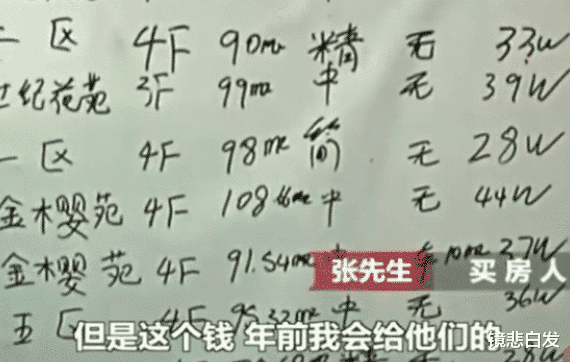 二区 4F 90m 精 无 33W
世纪花苑 3F 99m² 中 无 39W
一区 4F 98m² 简 无 28W
金樱苑 4F 108 m² 中 无 44W
金樱苑 4F 91.54m² 10m² 37W
张先生 买房人
五区 4F 95.32m² 中 无 36W
但是这个钱 年前我会给他们的
镜悲白发